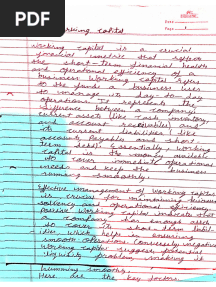 PDF
Date
Page
Working Capital
Working capital is a crucial
financial metric that reflects
the short-term financial health
and operational efficiency of a
business. Working capital refers
to the funds a business uses
to manage its day to day
operations. It represents the
difference between a company's
current assets (like cash, inventory,
and accounts receivable) and
its current liabilities (like
accounts payable and short
term debt). Essentially working
capital is the money available
to cover immediate operational
needs and keep the business
running smoothly.
Effective management of working capital
is crucial for maintaining business
solvency and operational efficiency.
Positive working capital indicates that
a company has enough assets
to cover its short term liabi-
lities, which helps in ensuring
smooth operations. Conversely, negative
working capital suggests potential
liquidity problems, making it
running smoothly.
Here are the key factors